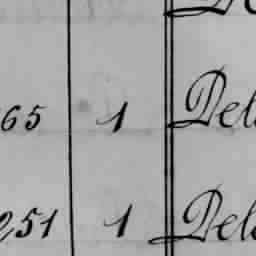 65 1 Del
251 1 Del